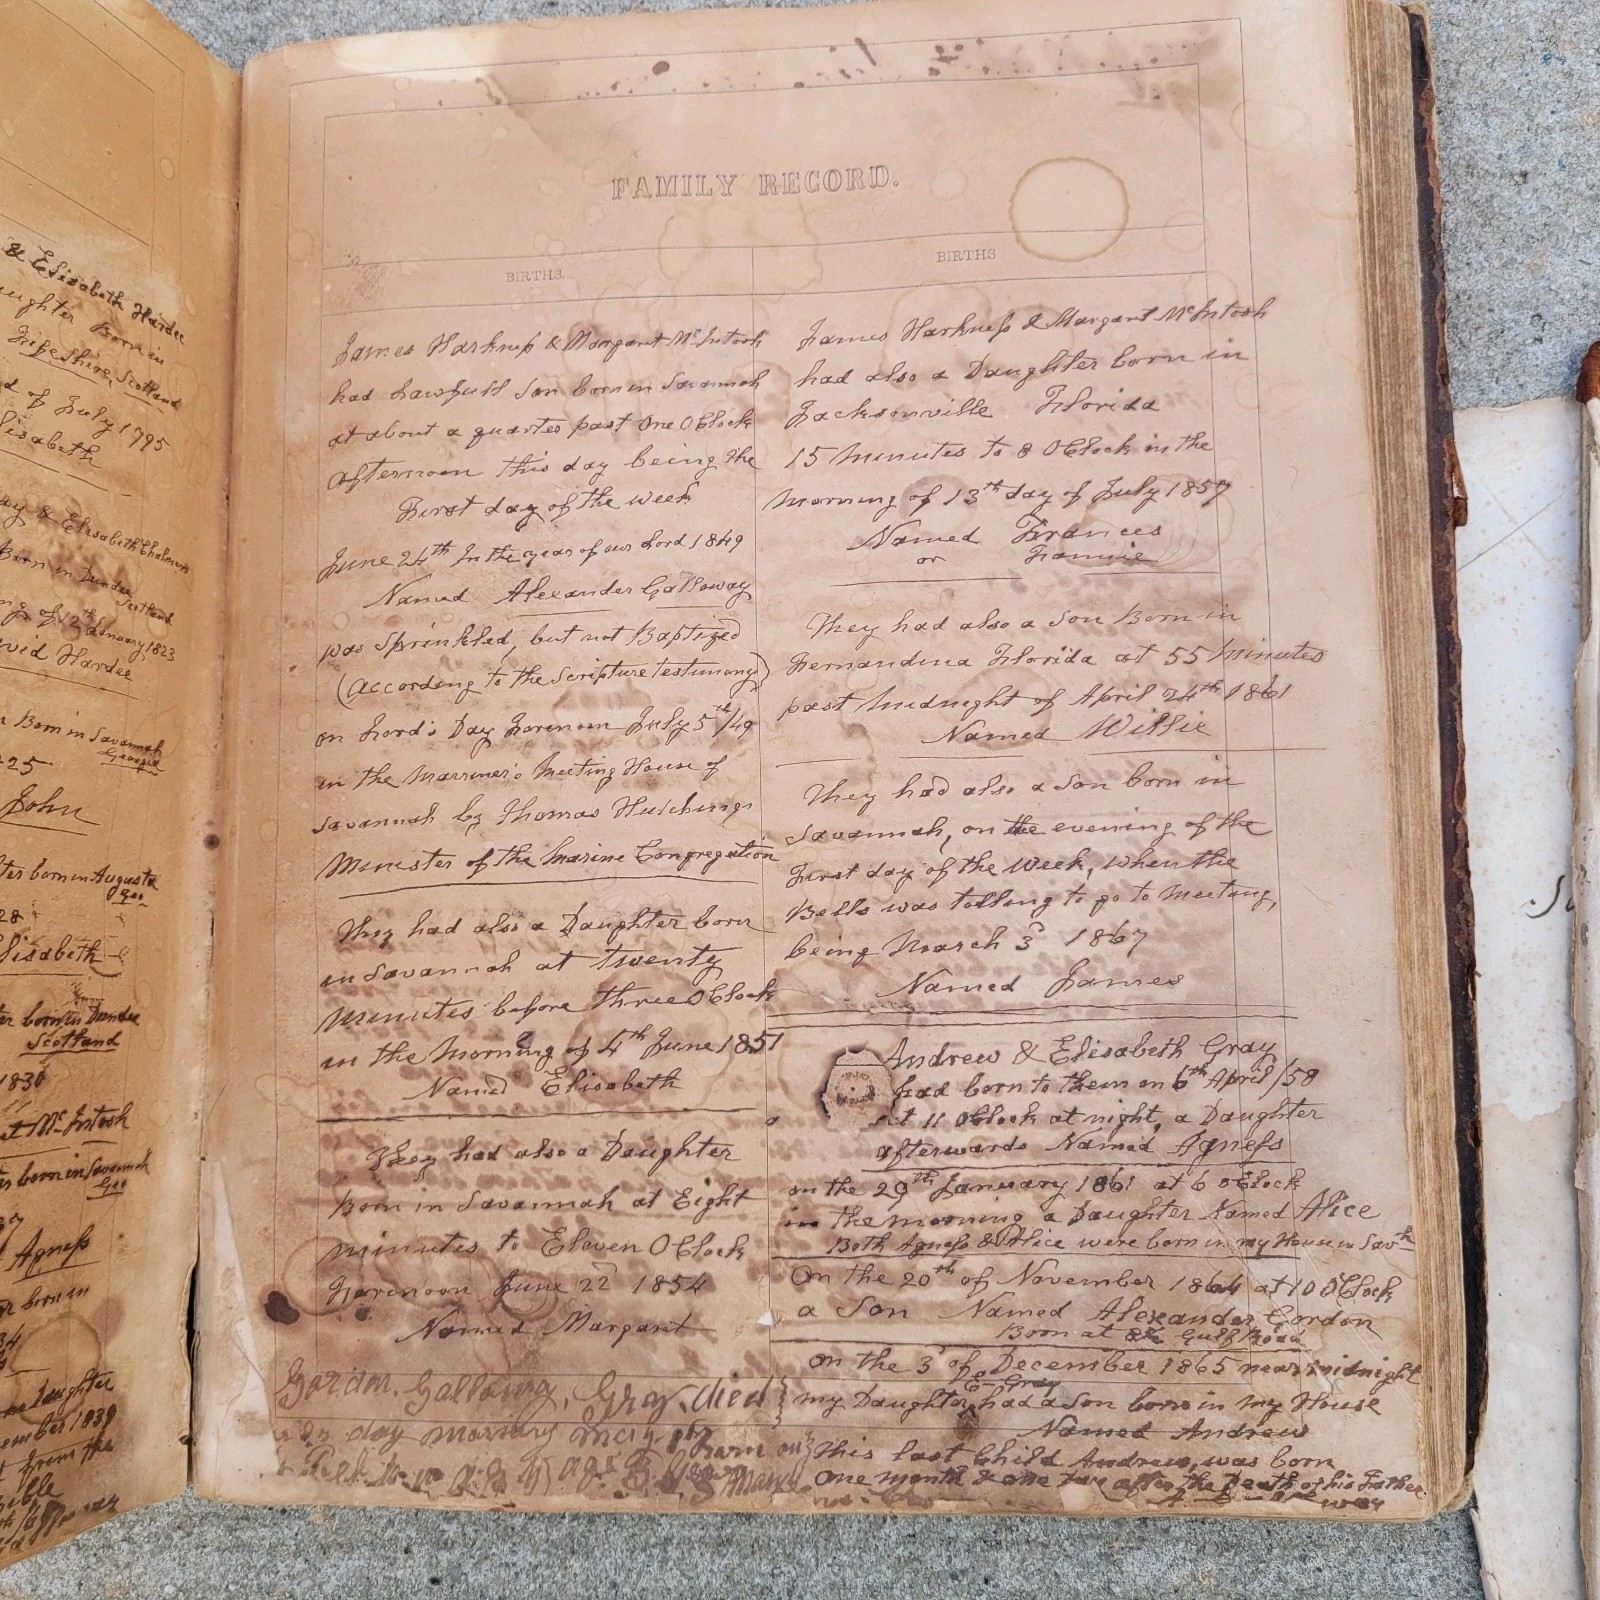 & Elisabeth Hardee
Daughter Born in
Fifeshire, Scotland
d of July 1795
lisabeth
ay & Elisabeth Chalmers
Born in Dundee
Scotland
ng of 12th January 1823
vid Hardee
Born in Savannah
Georgia
25
John
ter born in Augusta
Geo
28
lisabeth
er born in Dundee
Scotland
1830
et McIntosh
er born in Savannah
Geo
Agness
er born in
34
Daughter
ember 1839
from the
Bible
FAMILY RECORD.
BIRTHS.
James Harkness & Margaret McIntosh
had Lawfull Son born in Savannah
at about a quarter past One OClock
afternoon this day being the
First day of the week
June 24th In the year of our Lord 1849
Named Alexander Galloway
was Sprinkled, but not Baptized
(according to the Scripture testimony)
on Lord's Day Forenoon July 5th/49
in the Marriner's Meeting House of
Savannah by Thomas Hutchings
Minister of the Marine Congregation
They had also a Daughter born
in Savannah at twenty
Minutes before three OClock
in the Morning of 4th June 1851
Named Elisabeth
They had also a Daughter
Born in Savannah at Eight
minutes to Eleven OClock
Forenoon June 22d 1854
Named Margaret
Gordon. Galloway, Gray, died
day morning May
BIRTHS
James Harkness & Margaret McIntosh
had also a Daughter born in
Jacksonville Florida
15 Minutes to 8 OClock in the
Morning of 13th day of July 1857
Named Frances
or Fannie
They had also a Son Born in
Fernandina Florida at 55 Minutes
past Midnight of April 24th 1861
Named Willie
They had also a Son born in
Savannah, on the evening of the
First day of the week, when the
Bells was tolling to go to Meeting,
being March 3d 1867
Named James
Andrew & Elisabeth Gray
had born to them on 6th April /58
at 11 OClock at night, a Daughter
afterwards Named Agness
on the 29th January 1861 at 6 oClock
in the morning a Daughter Named Alice
Both Agness & Alice were born in my House in Savh
On the 20th of November 1864 at 10 OClock
a Son Named Alexander Gordon
Born at Gulf Road
on the 3d of December 1865 near midnight
E-Gray
my Daughter had a Son born in my House
Named Andrew
This last Child Andrew, was born
One month & one day after the Death of his Father